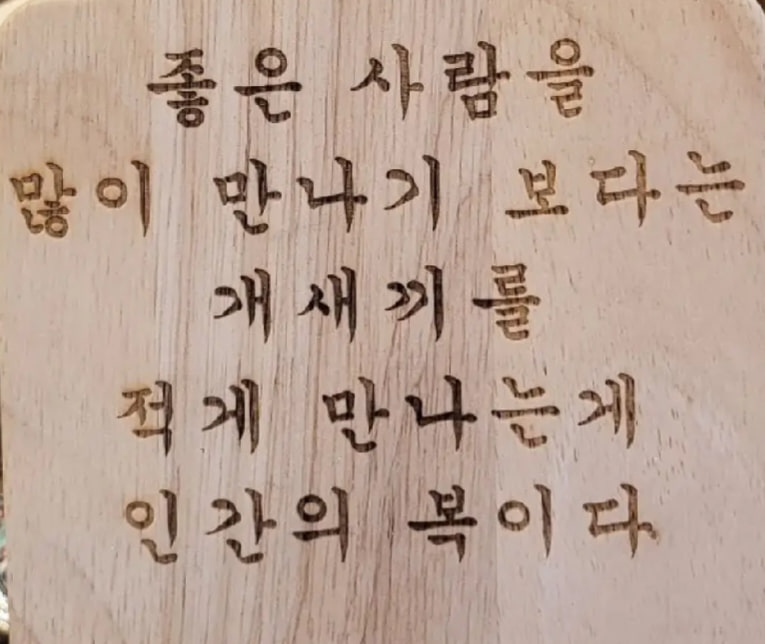 좋은 사람을
많이 만나기 보다는
개새끼를
적게 만나는게
인간의 복이다